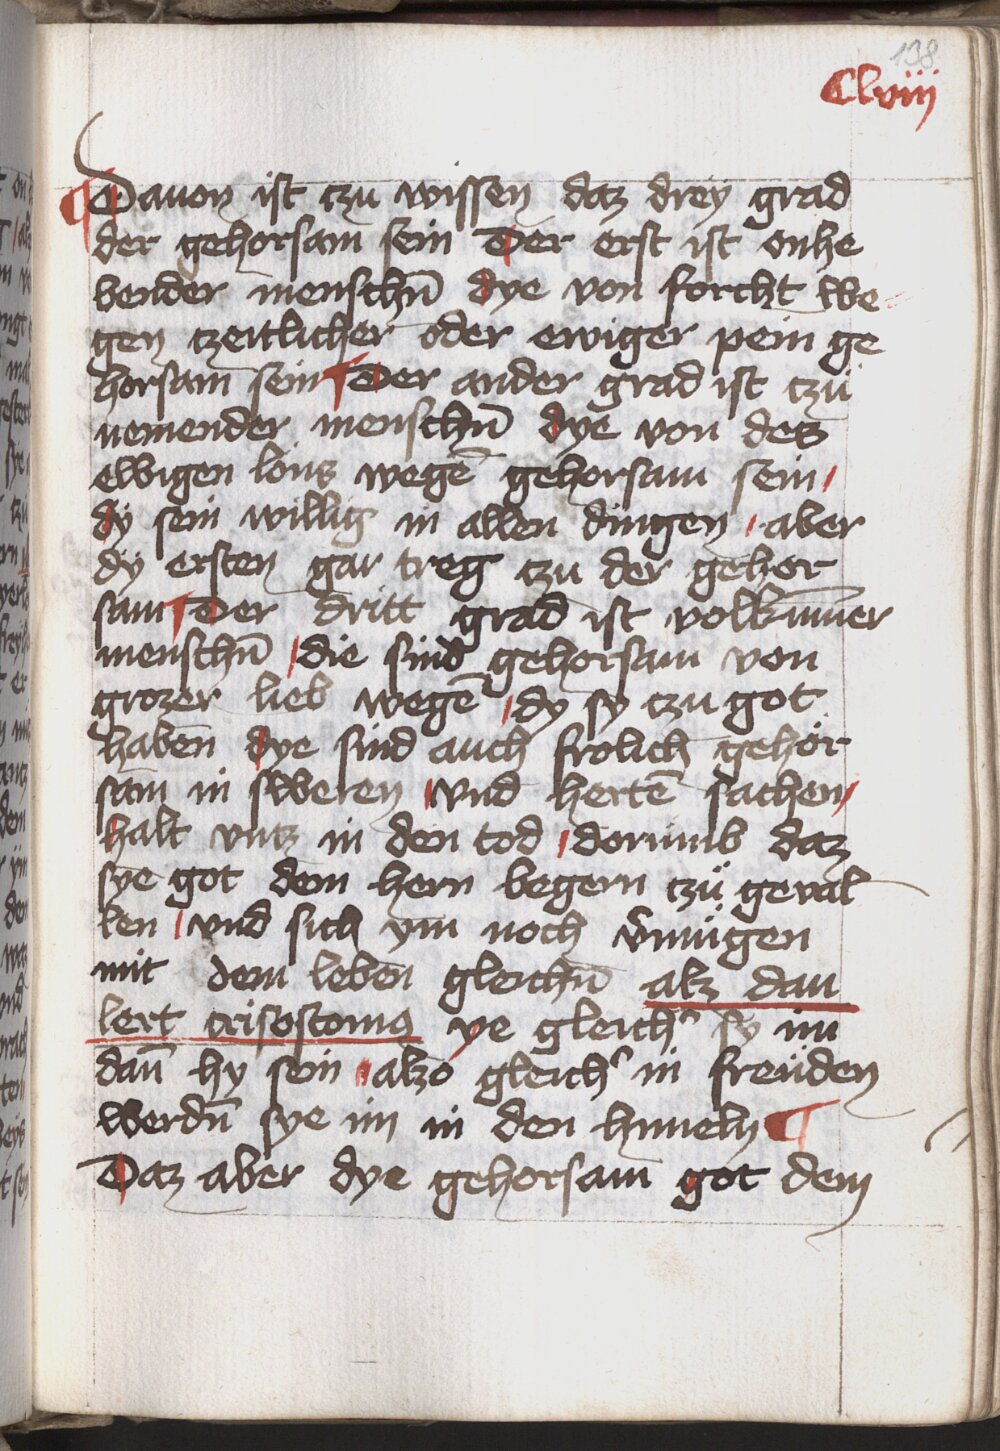 138
Clviii
¶ Dauon ist czu wissen daz drey grad
der gehorsam sein Der erst ist onhe
bender menschn̄ dye von forcht we-
gen czeitlicher oder ewiger pein ge
horsam sein ¶ Der ander grad ist czu
nemender menschn̄ dye von des
ewigen lons wegē gehorsam sein /
dy sein willig in allen dingen / aber
dy ersten gar treg czu der gehor
sam ¶ Der dritt grad ist volkūmer
menschn̄ / die sind gehorsam von
grozer lieb wegē / dy sy czu got
haben dye sind auch frolich gehor-
sam in sweren / vnd hertē sachen /
halt vntz in den tod / dorumb daz
sye got dem hern begern czu geual
len / vnd sich ym noch v̄mugen
mit dem leben gleichn̄ alz dau
lert crisostomus ye gleich sy im
dan̄ hy sein / alzo gleich in freuden
werdn̄ sye im in den himeln ¶
Daz aber dye gehorsam got dem